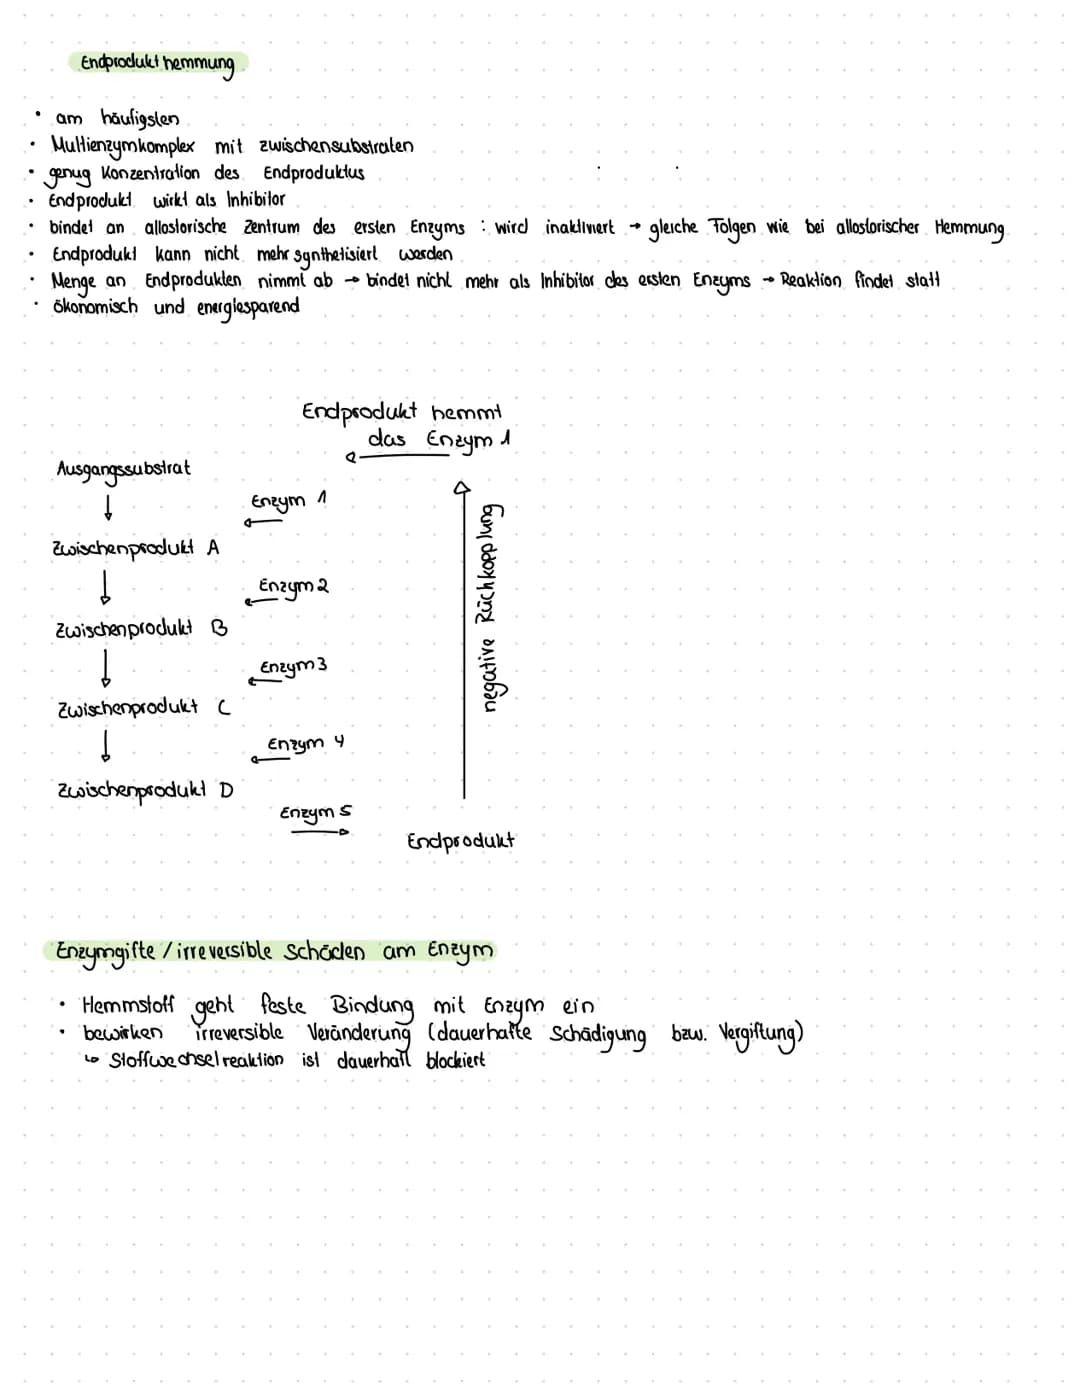 Endprodukthemmung
• am häufigsten
• Multienzymkomplex mit zwischensubstraten
• genug Konzentration des Endproduktus
• Endprodukt wirkt als Inhibitor
• bindet an allostorische Zentrum des ersten Enzyms : wird inaktiviert → gleiche Folgen wie bei allostorischer Hemmung
• Endprodukt kann nicht mehr synthetisiert werden
• Menge an Endprodukten nimmt ab → bindet nicht mehr als Inhibitor des ersten Enzyms → Reaktion findet statt
• ökonomisch und energiesparend
Endprodukt hemmt
das Enzym 1
Ausgangssubstrat
Enzym 1
Zwischenprodukt A
Enzym 2
Zwischenprodukt B
Enzym 3
Zwischenprodukt C
Enzym 4
Zwischenprodukt D
Enzym 5
Endprodukt
negative Rückkopplung
Enzymgifte / irreversible Schäden am Enzym
• Hemmstoff geht feste Bindung mit Enzym ein
• bewirken irreversible Veränderung (dauerhafte Schädigung bzw. Vergiftung)
↳ Stoffwechselreaktion ist dauerhaft blockiert